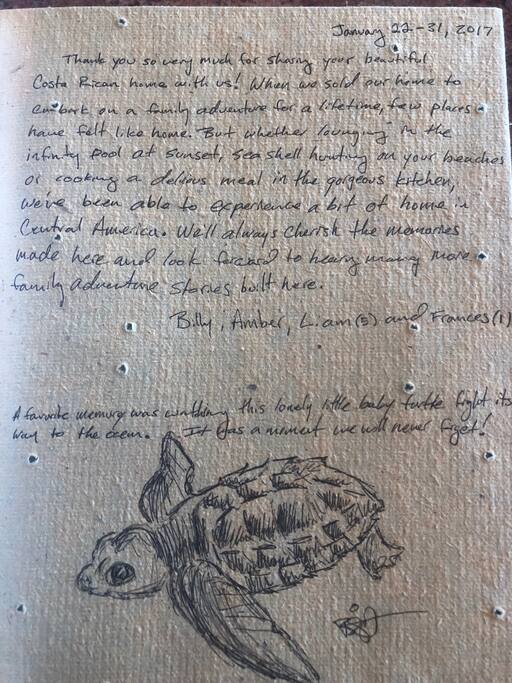 January 22-31, 2017
Thank you so very much for sharing your beautiful
Costa Rican home with us! When we sold our home to
embark on a family adventure for a lifetime, few places
have felt like home. But whether lounging in the
infinity pool at sunset, sea shell hunting on your beaches
or cooking a delious meal in the gorgeous kitchen,
we've been able to experience a bit of home in
Central America. We'll always cherish the memories
made here and look forward to hearing many more
family adventure stories built here.
Billy, Amber, Liam (5) and Frances (1)
A favorite memory was watching this lonely little baby turtle fight its
way to the ocean. It was a moment we will never forget!